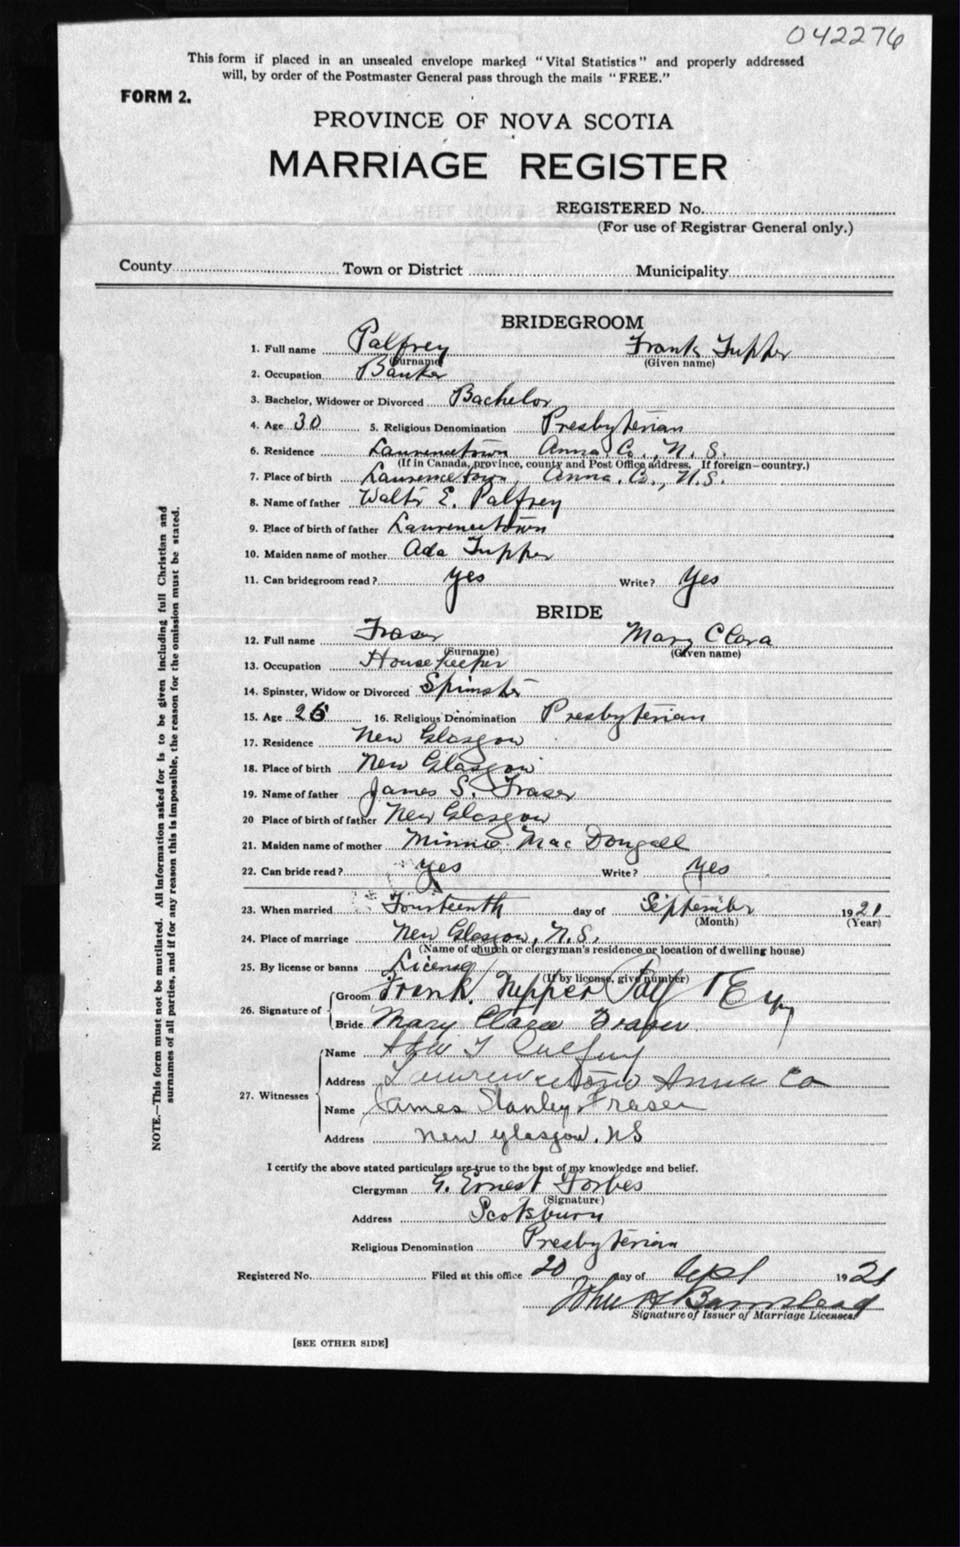 042276
This form if placed in an unsealed envelope marked "Vital Statistics" and properly addressed
will, by order of the Postmaster General pass through the mails "FREE."
FORM 2.
PROVINCE OF NOVA SCOTIA
MARRIAGE REGISTER
REGISTERED No.
(For use of Registrar General only.)
County Town or District Municipality
BRIDEGROOM
1. Full name Palfrey Frank Tupper
(Surname) (Given name)
2. Occupation Banker
3. Bachelor, Widower or Divorced Bachelor
4. Age 30 5. Religious Denomination Presbyterian
6. Residence Lawrencetown Anna Co., N. S.
(If in Canada, province, county and Post Office address. If foreign—country.)
7. Place of birth Lawrencetown, Anna. Co., N.S.
8. Name of father Walter E. Palfrey
9. Place of birth of father Lawrencetown
10. Maiden name of mother Ada Tupper
11. Can bridegroom read? yes Write? Yes
BRIDE
12. Full name Fraser Mary Clara
(Surname) (Given name)
13. Occupation Housekeeper
14. Spinster, Widow or Divorced Spinster
15. Age 16. Religious Denomination Presbyterian
17. Residence New Glasgow
18. Place of birth New Glasgow
19. Name of father James S. Fraser
20 Place of birth of father New Glasgow
21. Maiden name of mother Minnie MacDougall
22. Can bride read? yes Write? yes
23. When married Fourteenth day of September 1921
(Month) (Year)
24. Place of marriage New Glasgow, N.S.
(Name of church or clergyman's residence or location of dwelling house)
25. By license or banns License
(If by license, give number)
26. Signature of Groom Frank Tupper Palfrey
Bride Mary Clara Fraser
27. Witnesses Name
Address Lawrencetown Anna Co
Name James Stanley Fraser
Address New Glasgow. NS
I certify the above stated particulars are true to the best of my knowledge and belief.
Clergyman G. Ernest Forbes
(Signature)
Address Scotsburn
Religious Denomination Presbyterian
Registered No. Filed at this office 20 day of Sept 1921
John H Bamstead
Signature of Issuer of Marriage Licenses.
[SEE OTHER SIDE]
NOTE.—This form must not be mutilated. All information asked for is to be given including full Christian and
surnames of all parties, and if for any reason this is impossible, the reason for the omission must be stated.